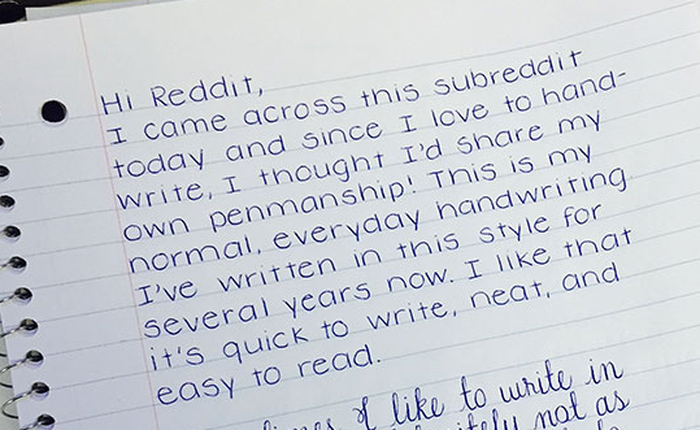 Hi Reddit,
I came across this subreddit
today and since I love to hand-
write, I thought I'd share my
own penmanship! This is my
normal, everyday handwriting
I've written in this style for
several years now. I like that
it's quick to write, neat, and
easy to read.
I like to write in
not as